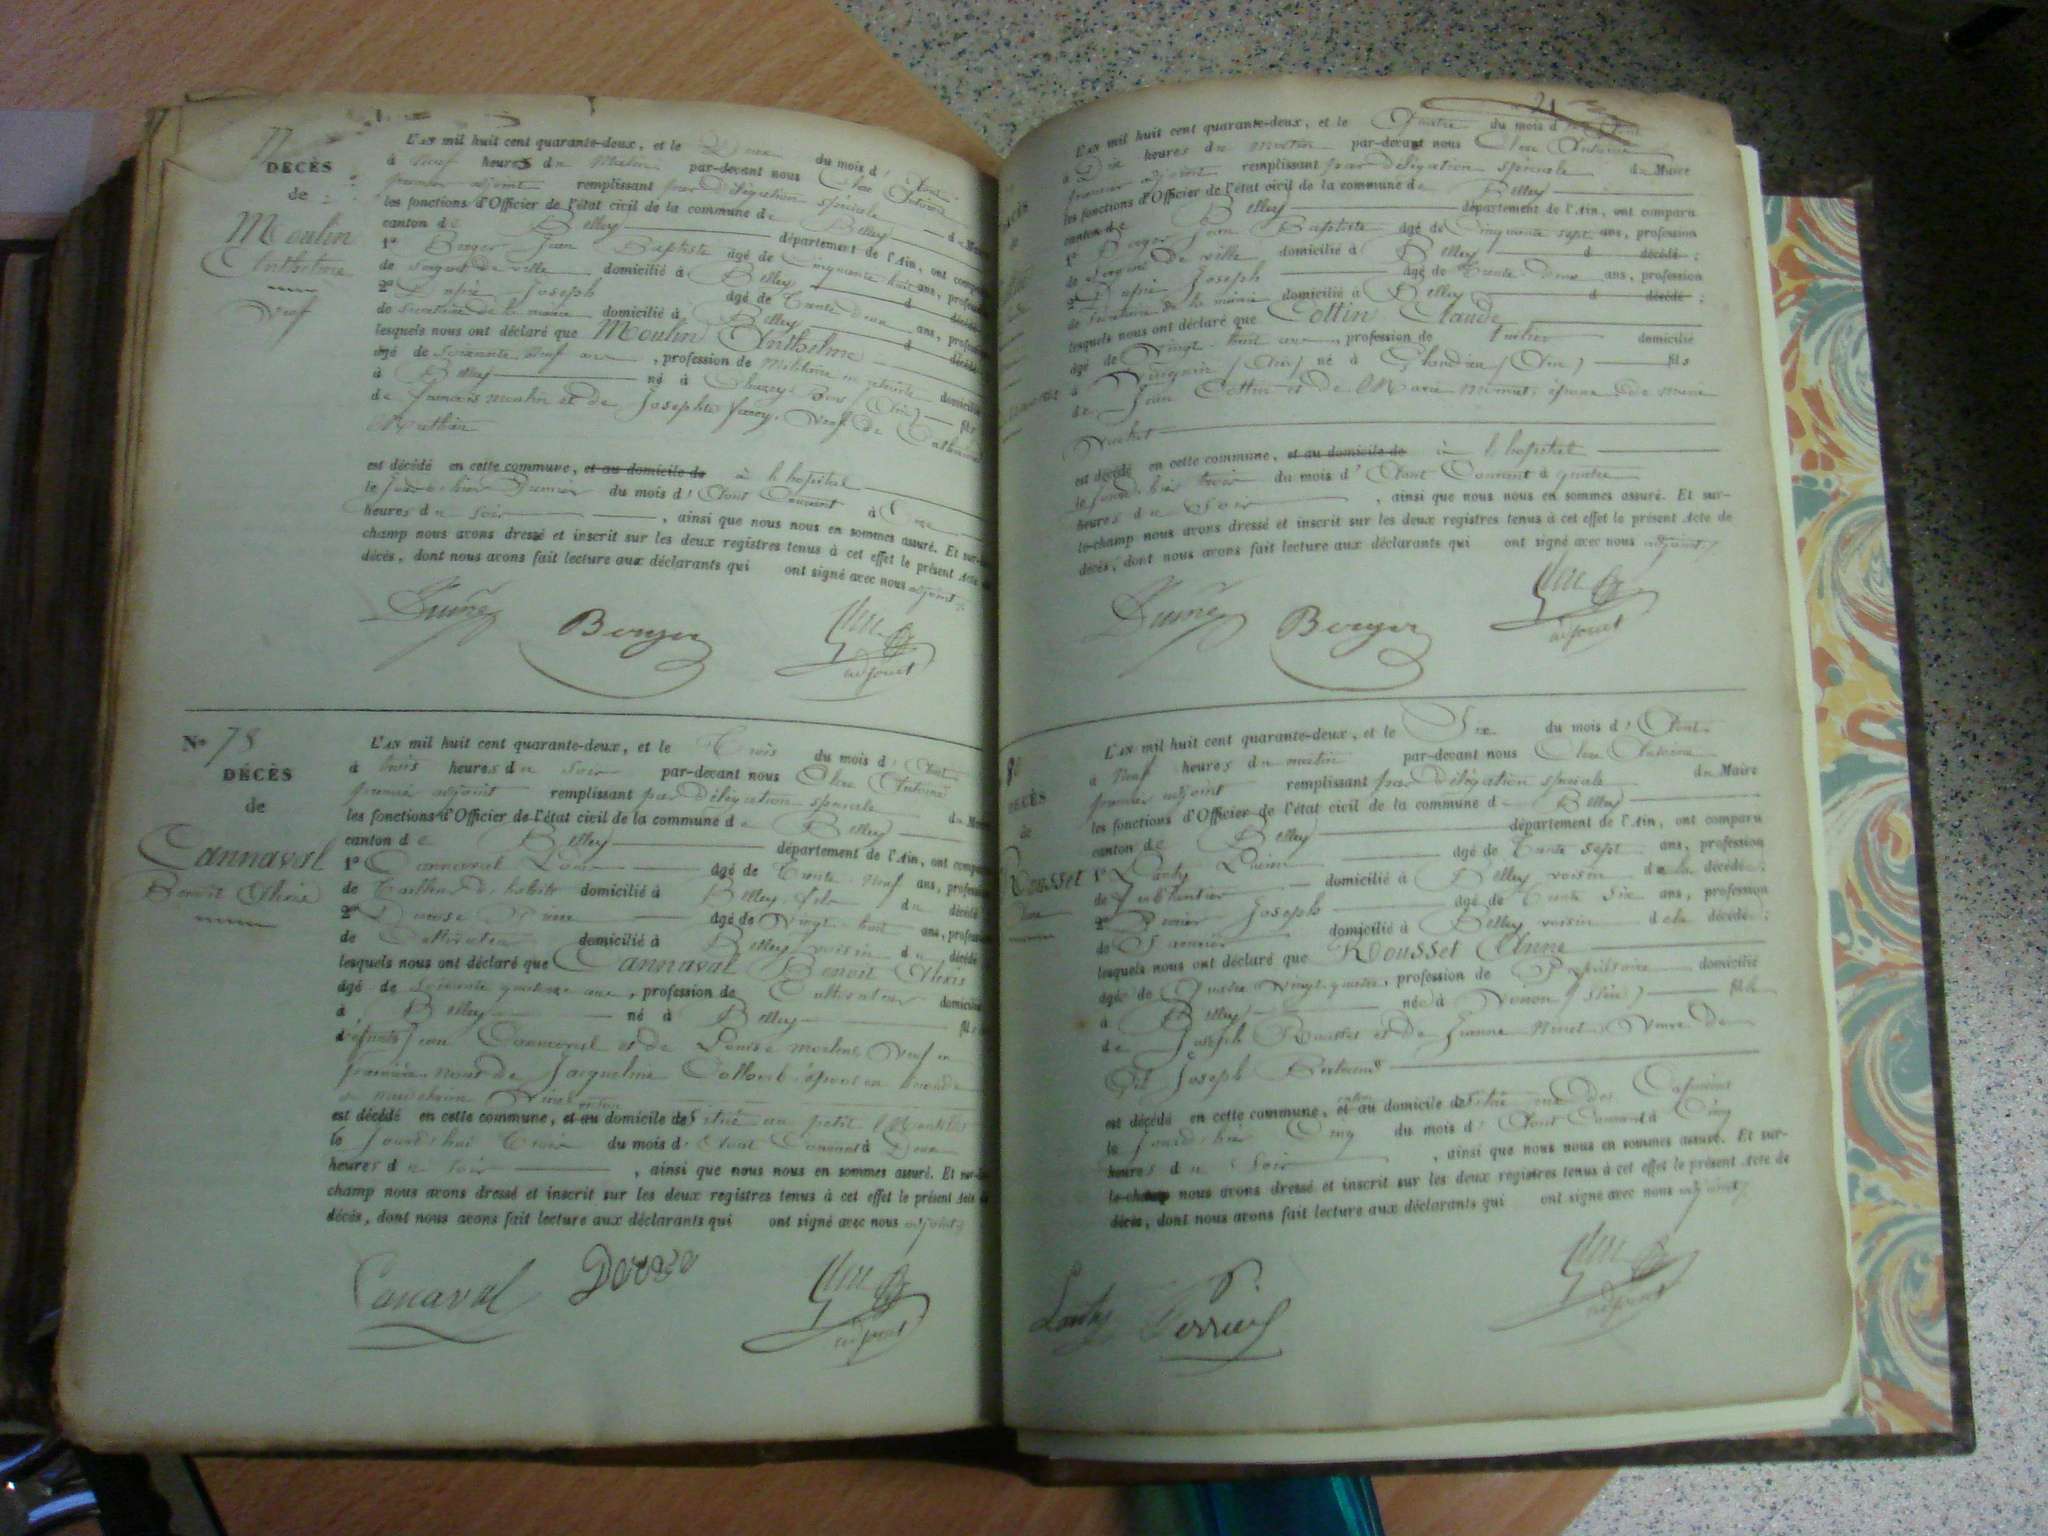 77
DÉCÈS
de
Moulin
Anthelme
Veuf
L'AN mil huit cent quarante-deux, et le Deux du mois d' Août
à neuf heures du matin par-devant nous Antoine
premier adjoint remplissant par délégation spéciale du Maire
les fonctions d'Officier de l'état civil de la commune de Belley
canton de Belley département de l'Ain, ont comparu
1º Berger Jean Baptiste âgé de Cinquante huit ans, profession
de Sergent de ville domicilié à Belley d décédé
2º Joseph âgé de Trente deux ans, profession
de Secrétaire de la mairie domicilié à Belley d décédé
lesquels nous ont déclaré que Moulin Anthelme
âgé de soixante neuf ans, profession de Militaire en retraite domicilié
à Belley né à (Ain) fils
de moulin et de Josephte veuf de Catherine
Mathieu
est décédé en cette commune, et au domicile de à l'hopital
le jour d'hier Premier du mois d' Août Courant à Onze
heures du Soir, ainsi que nous nous en sommes assuré. Et sur-le-
champ nous avons dressé et inscrit sur les deux registres tenus à cet effet le présent Acte de
décès, dont nous avons fait lecture aux déclarants qui ont signé avec nous adjoint
Berger
adjoint
Nº 78
DÉCÈS
de
Cannaval
Benoit Alexis
L'AN mil huit cent quarante-deux, et le Trois du mois d' Août
à trois heures du Soir par-devant nous Antoine
premier adjoint remplissant par délégation spéciale du Maire
les fonctions d'Officier de l'état civil de la commune de Belley
canton de Belley département de l'Ain, ont comparu
1º Cannaval âgé de Trente neuf ans, profession
de Tailleur d'habits domicilié à Belley fils du décédé
2º âgé de Vingt huit ans, profession
de Cultivateur domicilié à Belley voisin du décédé
lesquels nous ont déclaré que Cannaval Benoit Alexis
âgé de soixante quatorze ans, profession de Cultivateur domicilié
à Belley né à Belley fils
défunts Jean Cannaval et de Louise veuf en
première noces de Jacqueline Collomb époux en seconde
est décédé en cette commune, et au domicile de situé au petit
le jourd'hui Trois du mois d' Août Courant à Deux
heures du Soir, ainsi que nous nous en sommes assuré. Et sur-le-
champ nous avons dressé et inscrit sur les deux registres tenus à cet effet le présent Acte de
décès, dont nous avons fait lecture aux déclarants qui ont signé avec nous adjoint
Canaval
adjoint
21
L'AN mil huit cent quarante-deux, et le Quatre du mois d' Août
à Dix heures du matin par-devant nous Antoine
premier adjoint remplissant par délégation spéciale du Maire
les fonctions d'Officier de l'état civil de la commune de Belley
canton de Belley département de l'Ain, ont comparu
1º Berger Jean Baptiste âgé de Cinquante sept ans, profession
de Sergent de ville domicilié à Belley d décédé ;
2º Joseph âgé de Trente Deux ans, profession
de Secrétaire de la mairie domicilié à Belley d décédé ;
lesquels nous ont déclaré que Cottin Claude
âgé de Vingt huit ans, profession de domicilié
à (Ain) né à Glandieu (Ain) fils
de Jean Cottin et de Marie époux de marie
est décédé en cette commune, et au domicile de à l'hopital
le jour d'hier trois du mois d' Août Courant à quatre
heures du Soir, ainsi que nous nous en sommes assuré. Et sur-
le-champ nous avons dressé et inscrit sur les deux registres tenus à cet effet le présent Acte de
décès, dont nous avons fait lecture aux déclarants qui ont signé avec nous adjoint
Berger
adjoint
80
DÉCÈS
de
Rousset
Anne
L'AN mil huit cent quarante-deux, et le Six du mois d' Août
à Neuf heures du matin par-devant nous Antoine
premier adjoint remplissant par délégation spéciale du Maire
les fonctions d'Officier de l'état civil de la commune de Belley
canton de Belley département de l'Ain, ont comparu
1º âgé de Trente sept ans, profession
de ferblantier domicilié à Belley voisin de la décédée ;
2º Joseph âgé de Trente Six ans, profession
de domicilié à Belley voisin de la décédée ;
lesquels nous ont déclaré que Rousset Anne
âgée de Quatre Vingt quatre, profession de domicilié
à Belley née à (Ain) fille
de Joseph Rousset et de Jeanne Veuve de
Joseph
est décédé en cette commune, et au domicile de situé rue des
le jour d'hier Cinq du mois d' Août Courant à Cinq
heures du Soir, ainsi que nous nous en sommes assuré. Et sur-
le-champ nous avons dressé et inscrit sur les deux registres tenus à cet effet le présent Acte de
décès, dont nous avons fait lecture aux déclarants qui ont signé avec nous adjoint
adjoint